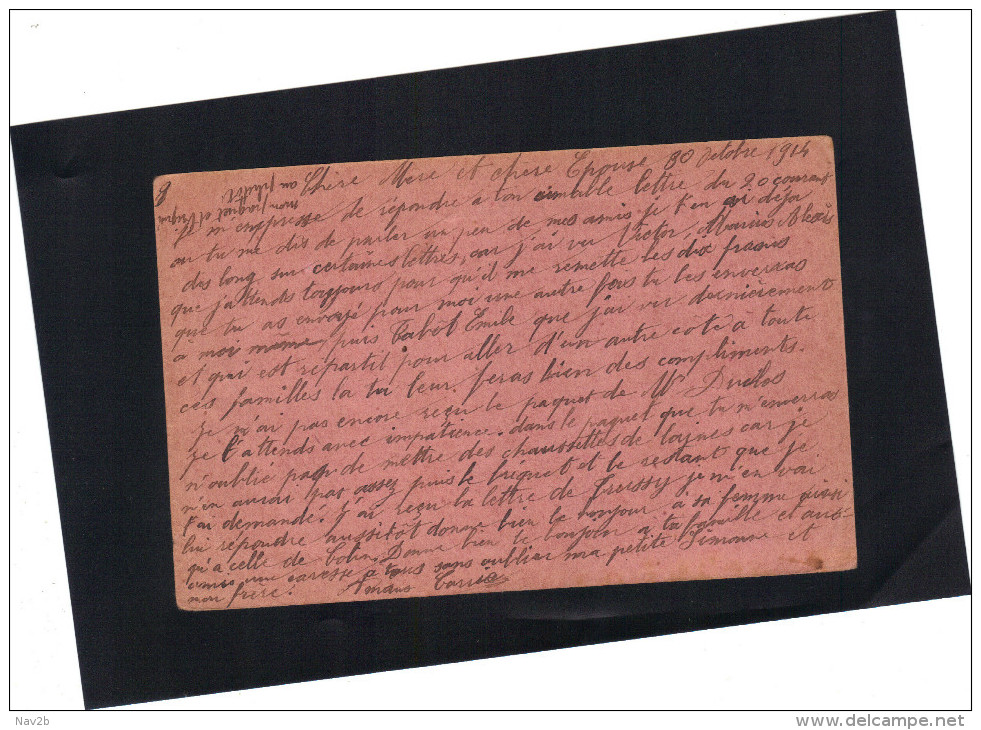 8
Chère Mere et chere Epouse 30 octobre 1914
mon paquet et
au plutôt
Je m'empresse de répondre a ton aimable lettre du 20 courant
ou tu me dis de parler un peu de mes amis je t'en ai déja
des long sur certaines lettres, car j'ai vu Victor, Marius Alexis
que j'attends toujours pour qu'il me remette les dix francs
que tu as envoyé pour moi une autre fois tu les enverras
à moi meme puis Cabot Emile que j'ai vu dernièrement
et qui est repartit pour aller d'un autre côté à toute
ces familles la tu leur feras bien des compliments.
Je n'ai pas encore reçu le paquet de Mr Duclos
je l'attends avec impatience. dans le paquet que tu m'enverras
n'oublié pas de mettre des chaussettes de laines car je
n'en aurai pas assez puis le briquet et le restant que je
t'ai demandé. J'ai reçu la lettre de Froissy je m'en vai
lui répondre aussitot donne bien le bonjour a sa femme aussi
qu'a celle de Colin. Donne bien le bonjour a ta famille et
une caresse a tous sans oublier ma petite Simonne et
mon frere. Amans
Nav2b
www.delcampe.net